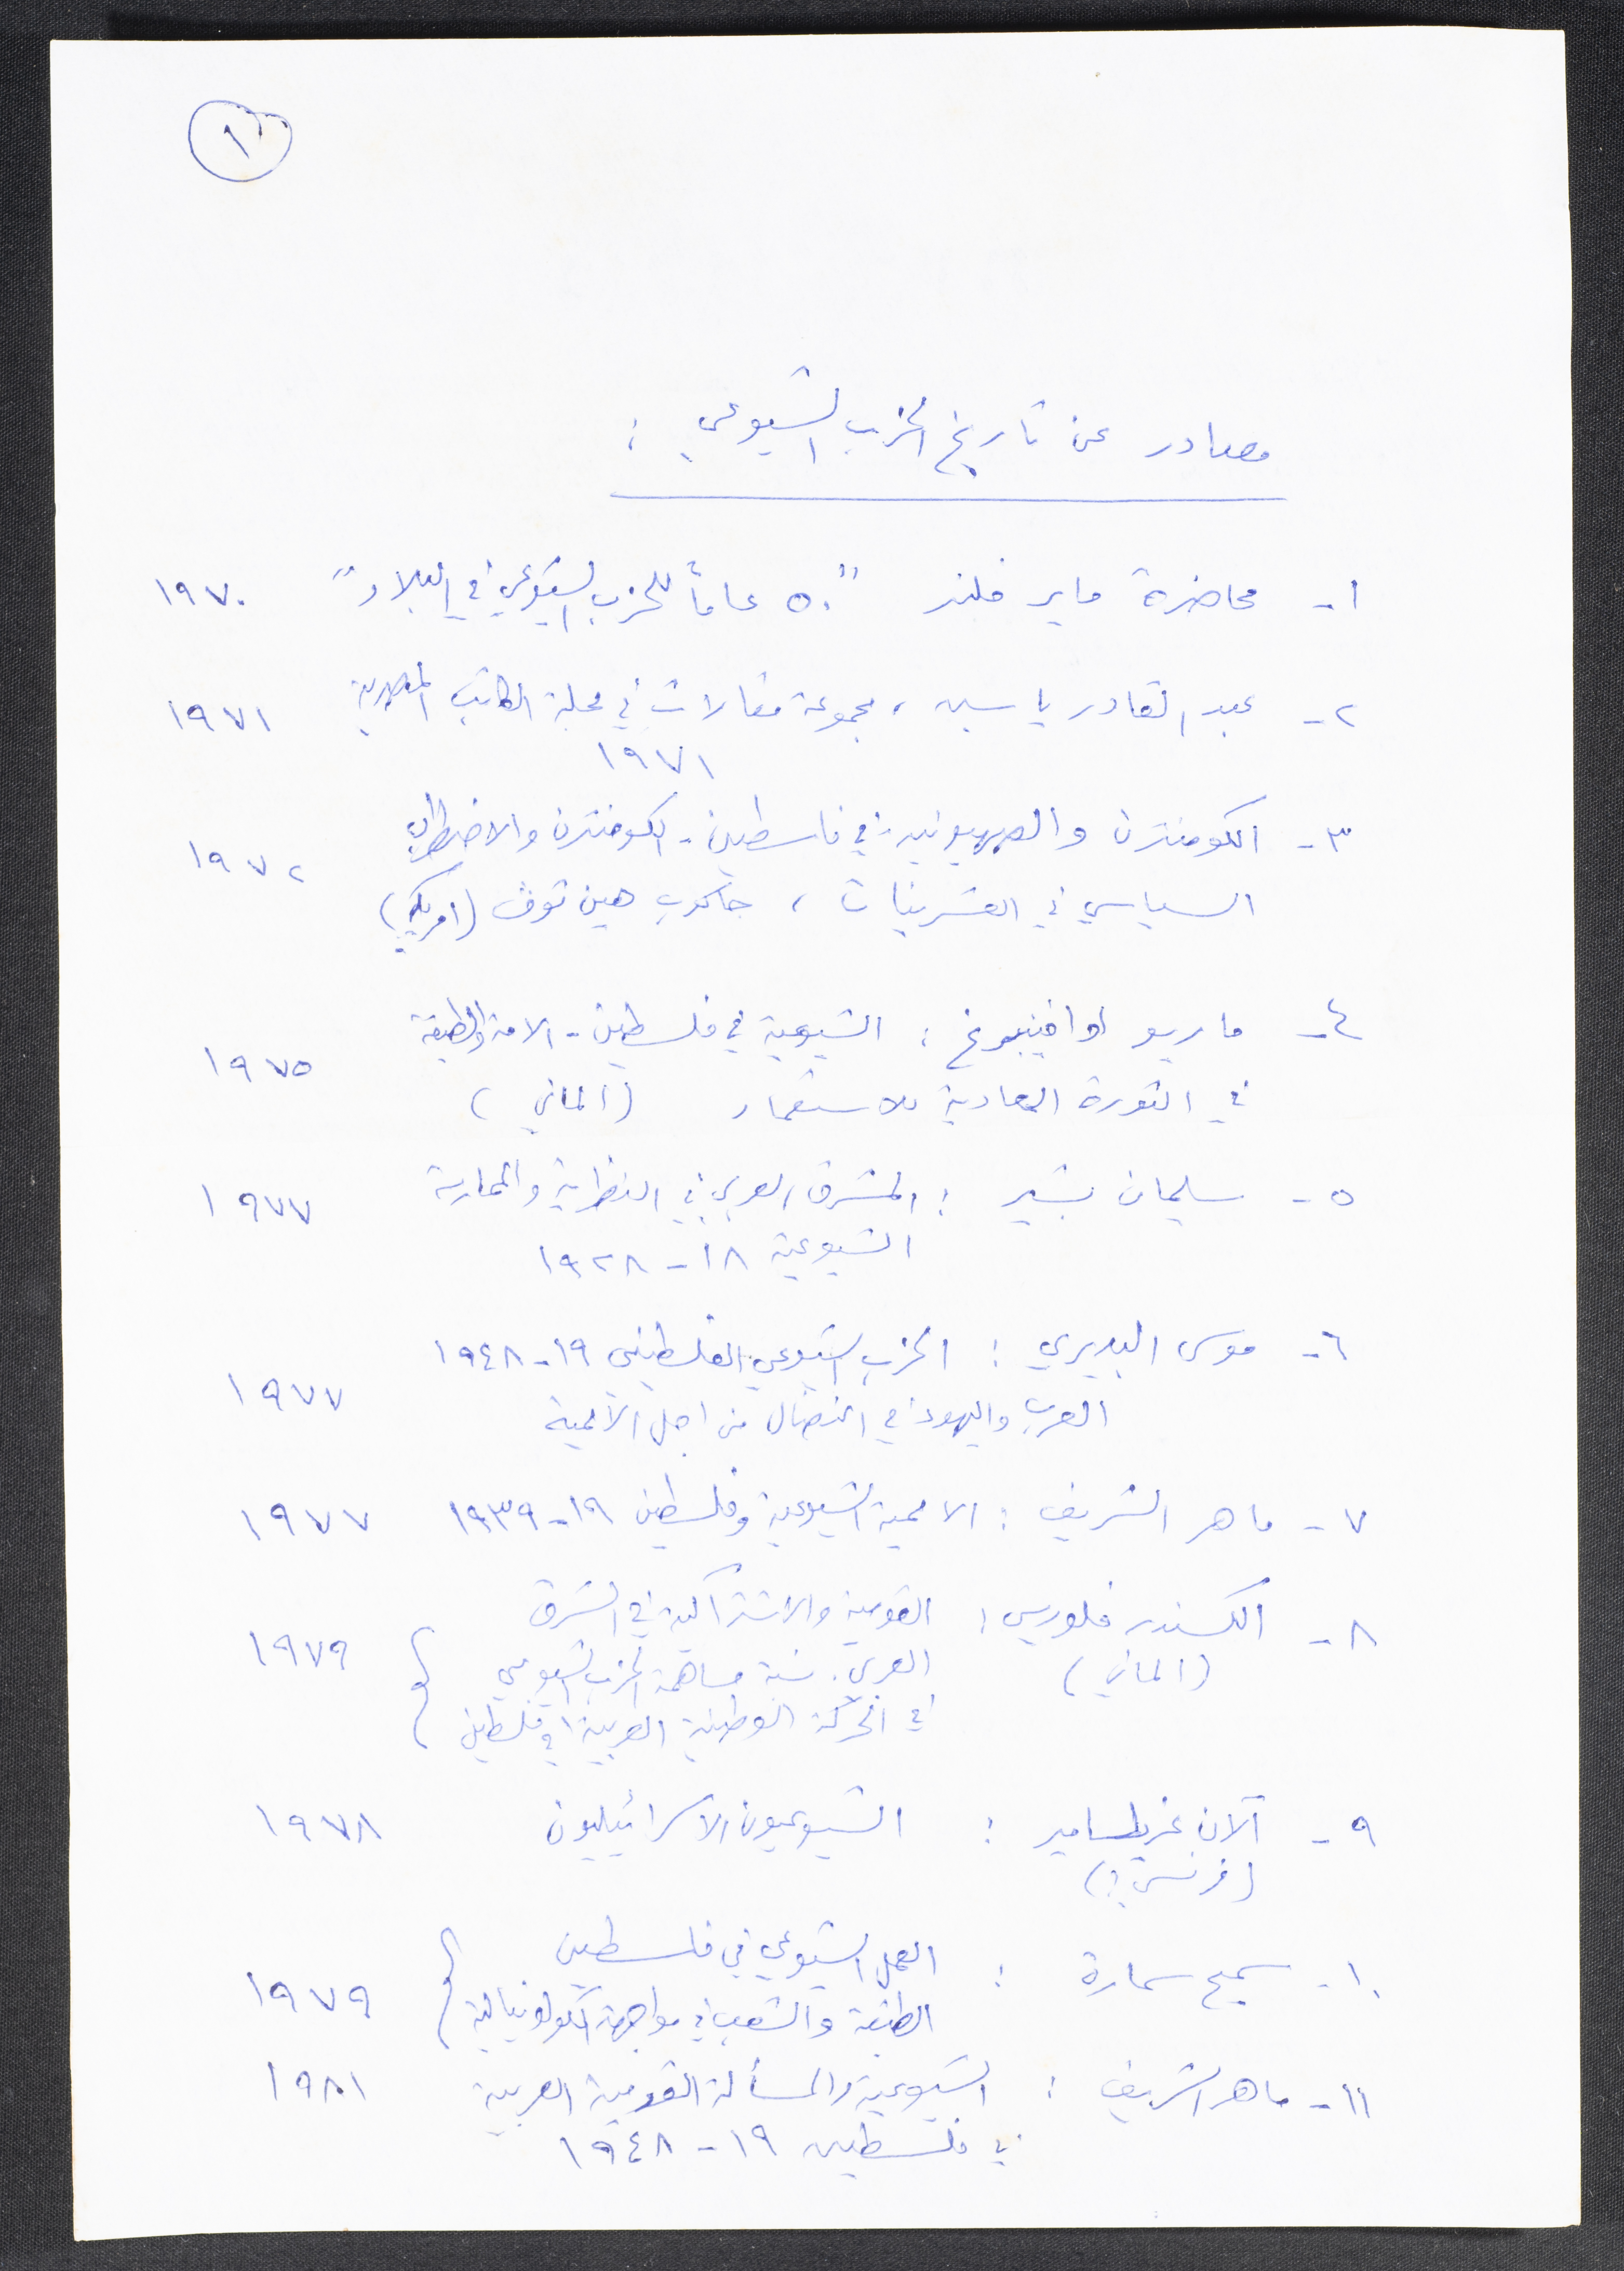 ١
مصادر عن تاريخ الحزب الشيوعي :
١- محاضرة ماير فلنر "٥٠ عاماً للحزب الشيوعي في البلاد" ١٩٧٠
٢- عبد القادر ياسين ، مجموعة مقالات في مجلة الكاتب المصرية ١٩٧١
١٩٧١
٣- الكومنترن والصهيونية في فلسطين - الكومنترن والاضطراب ١٩٧٢
السياسي في العشرينات ، جاكوب هين توف (امريكي)
٤- ماريو اوافينبورغ : الشيوعية في فلسطين - الامة والطبقة ١٩٧٥
في الثورة المعادية للاستعمار (الماني)
٥- سليمان بشير : المشرق العربي في النظرية والممارسة ١٩٧٧
الشيوعية ١٨ - ١٩٢٨
٦- موسى البديري : الحزب الشيوعي الفلسطيني ١٩ - ١٩٤٨ ١٩٧٧
العرب واليهود في النضال من اجل الأممية
٧- ماهر الشريف : الاممية الشيوعية وفلسطين ١٩ - ١٩٣٩ ١٩٧٧
٨- الكسندر فلورس : القومية والاشتراكية في الشرق ١٩٧٩
(الماني) العربي. مساهمة الحزب الشيوعي
في الحركة الوطنية العربية في فلسطين
٩- آلان غريلسامير : الشيوعيون الاسرائيليون ١٩٧٨
(فرنسي)
١٠- سميح سمارة : العمل الشيوعي في فلسطين ١٩٧٩
الطبقة والشعب في مواجهة الكولونيالية
١١- ماهر الشريف : الشيوعية والمسألة القومية العربية ١٩٨١
في فلسطين ١٩ - ١٩٤٨